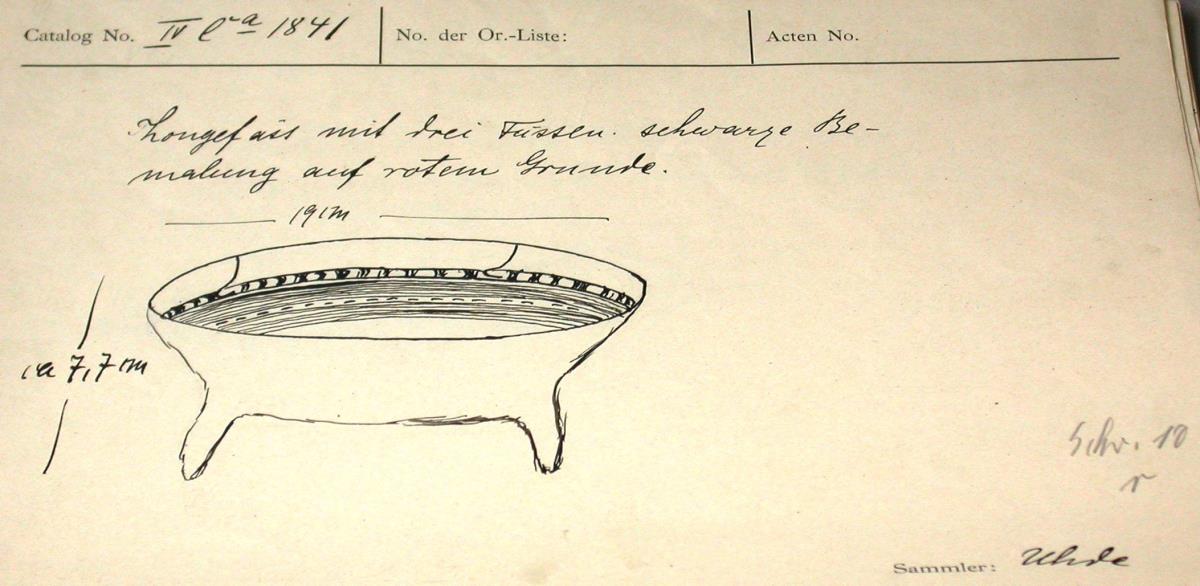 Catalog No. IV Ca 1841 No. der Or.-Liste: Acten No.
Thongefäss mit drei Füssen. schwarze Be-
malung auf rotem Grunde.
19 cm
ca 7,7 cm
Schr. 10
r
Sammler: Uhde